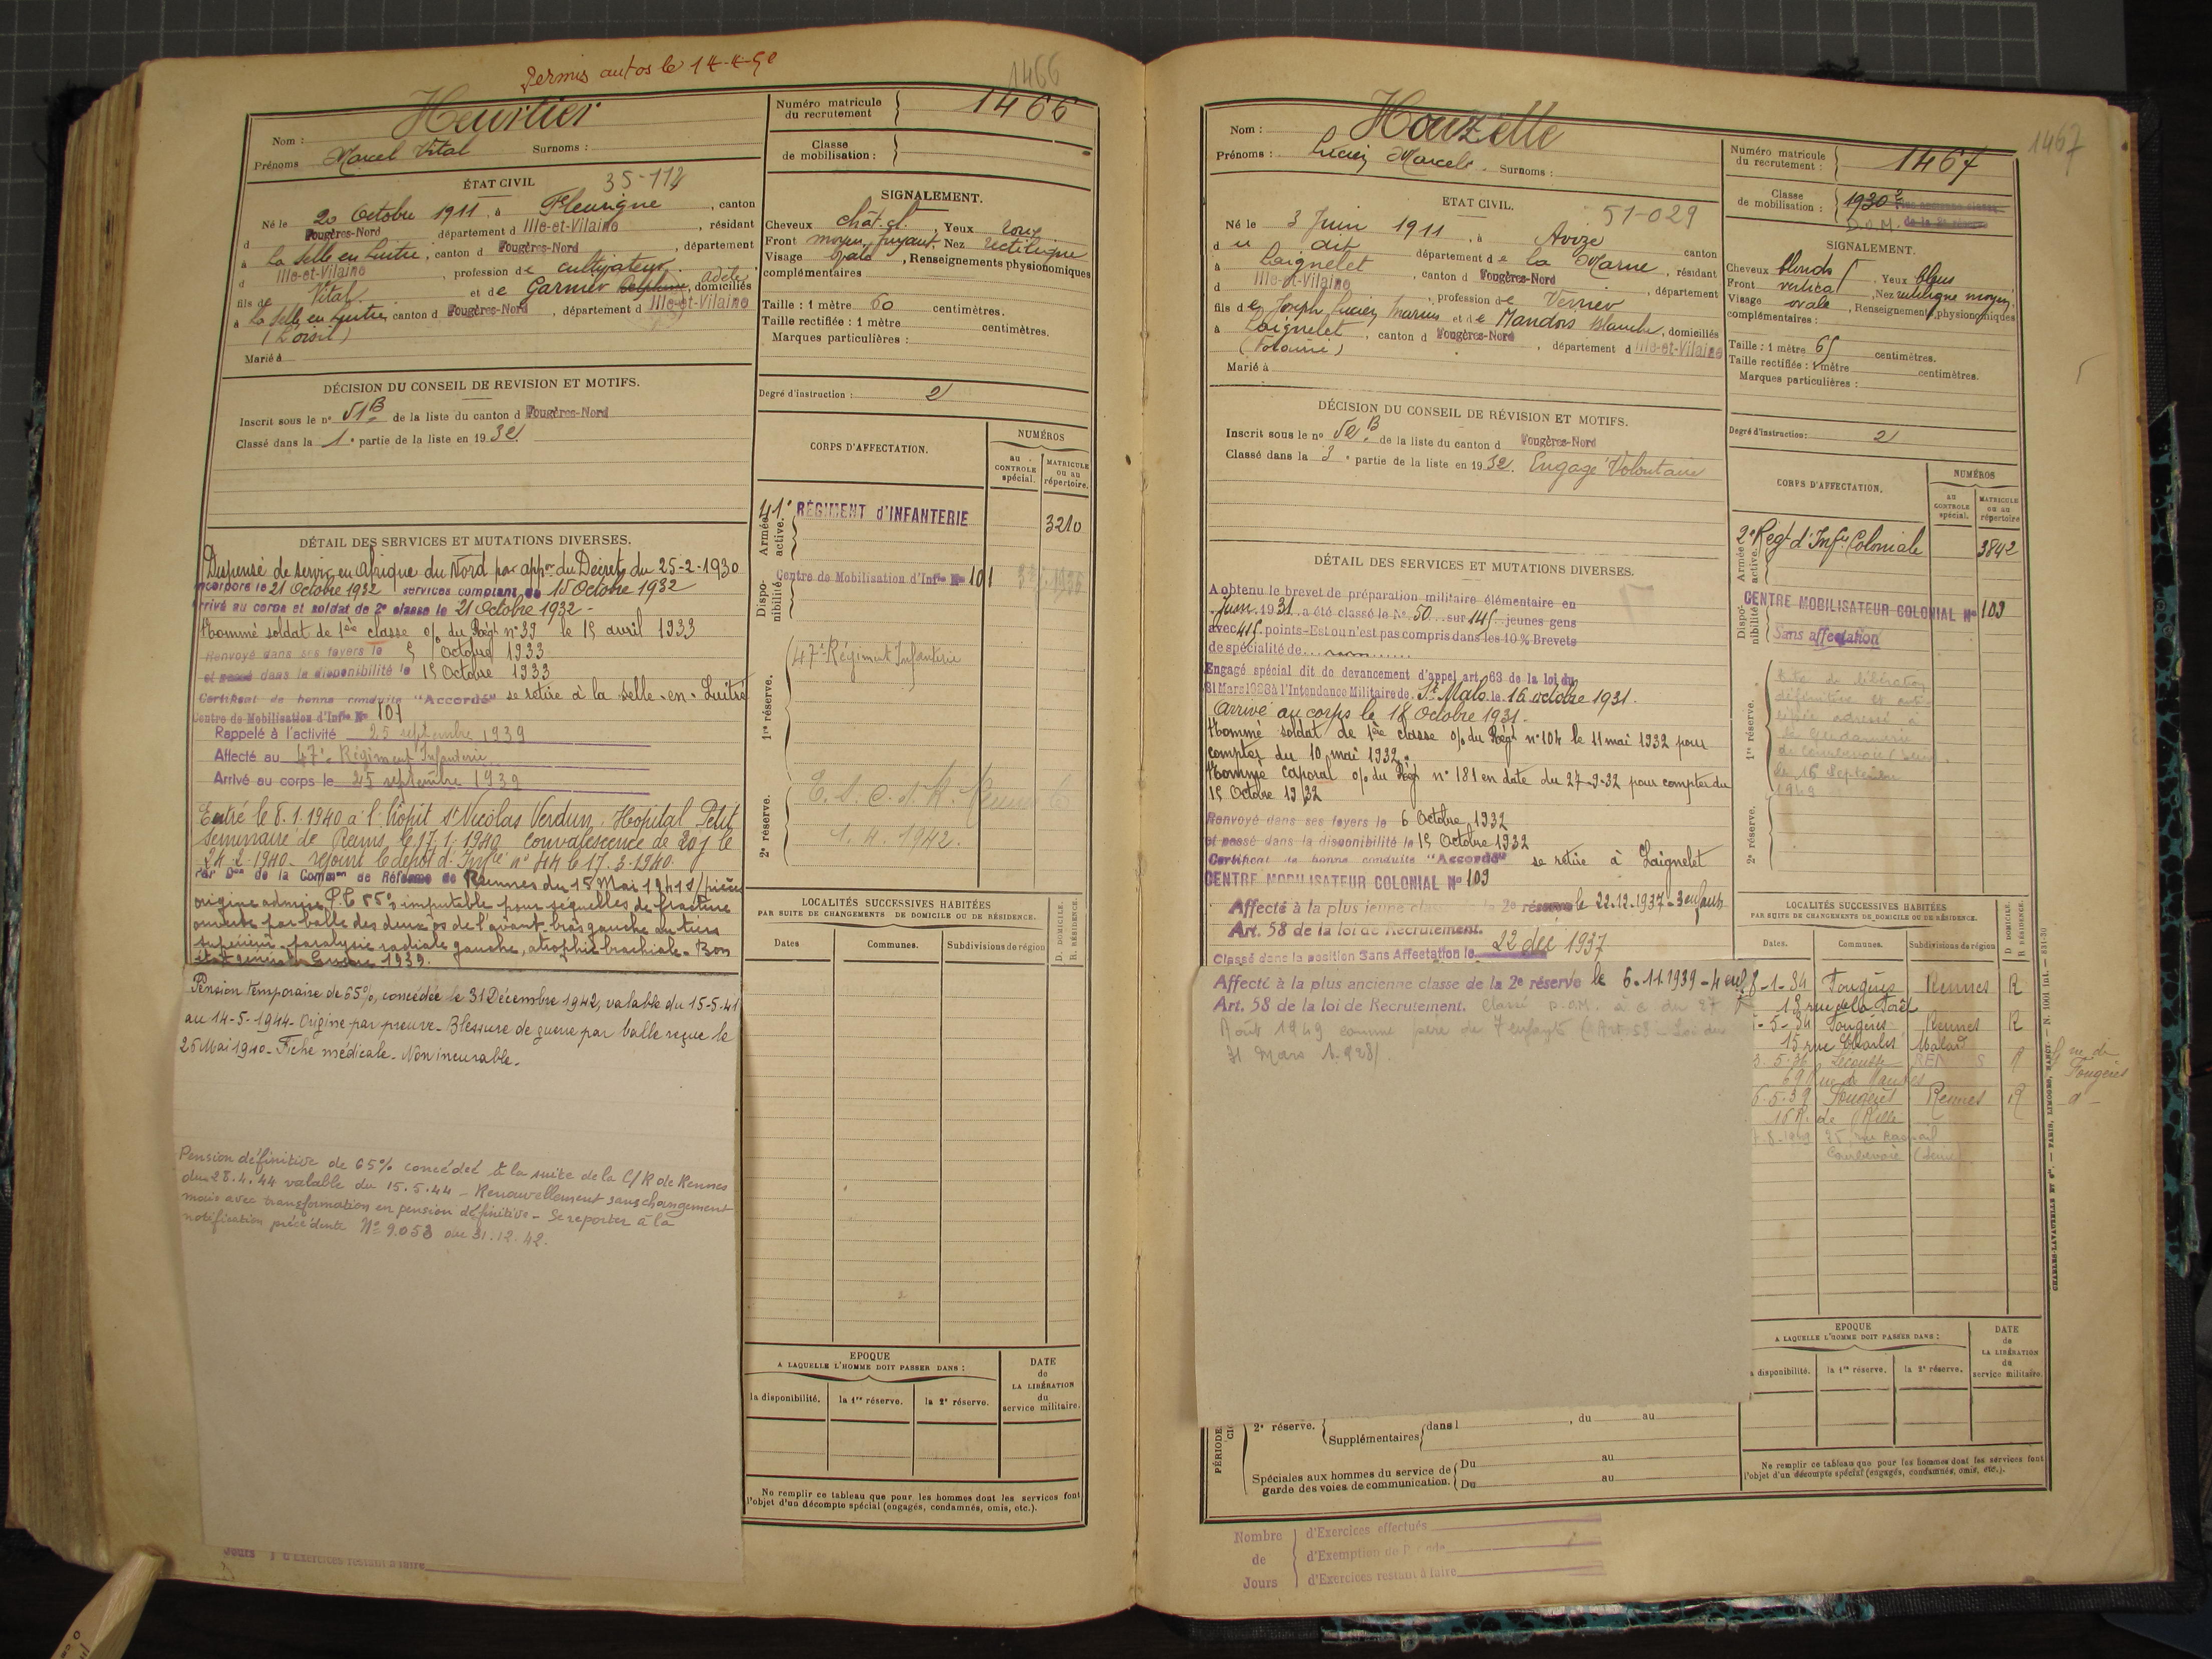 Permis autos le 14-4-50
1466
Nom : Heurtier
Prénoms Marcel Vital Surnoms :
Numéro matricule du recrutement 1466
Classe de mobilisation :
ÉTAT CIVIL
35-114
Né le 20 Octobre 1911, à Fleurigné, canton
d Fougères-Nord département d Ille-et-Vilaine, résidant
à La Selle en Luitré, canton d Fougères-Nord, département
d Ille-et-Vilaine, profession de cultivateur
fils de Vital et de Garnier Delphine Adèle, domiciliés
à La Selle en Luitré canton d Fougères-Nord, département d Ille-et-Vilaine
(Loisil)
Marié à
SIGNALEMENT.
Cheveux chât. cl. Yeux
Front moyen, fuyant, Nez rectiligne
Visage ovale, Renseignements physionomiques
complémentaires
Taille : 1 mètre 60 centimètres.
Taille rectifiée : 1 mètre centimètres.
Marques particulières :
Degré d'instruction : 2
DÉCISION DU CONSEIL DE REVISION ET MOTIFS.
Inscrit sous le n° 51 B de la liste du canton d Fougères-Nord
Classé dans la 1e partie de la liste en 1932
CORPS D'AFFECTATION.
NUMÉROS
au CONTROLE spécial.
MATRICULE ou au répertoire.
Armée active.
41e RÉGIMENT d'INFANTERIE 3210
Disponibilité
Centre de Mobilisation d'Infie No 101
1re réserve.
47e Régiment Infanterie
2e réserve.
1. 4. 1942.
DÉTAIL DES SERVICES ET MUTATIONS DIVERSES.
Dispensé de service en Afrique du Nord par appon du Décret du 25-2-1930
Incorporé le 21 Octobre 1932 services comptant du 15 Octobre 1932
Arrivé au corps et soldat de 2e classe le 21 Octobre 1932 -
Nommé soldat de 1ère classe o/ du Régt n° 39 le 15 avril 1933
Renvoyé dans ses foyers le 5 Octobre 1933
et passé dans la disponibilité le 15 Octobre 1933
Certificat de bonne conduite "Accordé" se retire à la Selle-en-Luitré
Centre de Mobilisation d'Infie No 101
Rappelé à l'activité 25 septembre 1939
Affecté au 47e Régiment Infanterie
Arrivé au corps le 25 septembre 1939
Entré le 8.1.1940 à l'hôpit St Nicolas Verdun. Hôpital Petit
Séminaire de Reims le 17.1.1940 convalescence de 20j le
24.2.1940 - rejoint le dépôt d'Infie n° 44 le 17.3.1940.
Par Don de la Common de Réforme de Rennes du 15 Mai 1941 s/pièces
origine admise P.T 65% imputable pour séquelles de fracture
ouverte par balle des deux os de l'avant-bras gauche au tiers
supérieur - paralysie radiale gauche, atrophie brachiale. Bon
état général. Guerre 1939.
Pension temporaire de 65%, concédée le 31 Décembre 1942, valable du 15-5-41
au 14-5-1944 - Origine par preuve - Blessure de guerre par balle reçue le
26 Mai 1940 - Fiche médicale - Non incurable.
Pension définitive de 65% concédée à la suite de la C/R de Rennes
du 28.4.44 valable du 15.5.44 - Renouvellement sans changement
mais avec transformation en pension définitive - Se reporter à la
notification précédente No 9.053 du 31.12.42.
Jours d'Exercices restant à faire
LOCALITÉS SUCCESSIVES HABITÉES
PAR SUITE DE CHANGEMENTS DE DOMICILE OU DE RÉSIDENCE.
Dates Communes. Subdivisions de région D. DOMICILE. R. RÉSIDENCE.
EPOQUE
A LAQUELLE L'HOMME DOIT PASSER DANS :
la disponibilité. la 1re réserve. la 2e réserve.
DATE de LA LIBÉRATION du service militaire.
Ne remplir ce tableau que pour les hommes dont les services font
l'objet d'un décompte spécial (engagés, condamnés, omis, etc.).
1467
Nom : Houzelle
Prénoms : Lucien Marcel. Surnoms :
Numéro matricule du recrutement : 1467
Classe de mobilisation : 1930
D.O.M.
ETAT CIVIL.
51-029
Né le 3 Juin 1911, à Avize
d u dit canton département de la Marne, résidant
à Laignelet, canton d Fougères-Nord, département
d Ille-et-Vilaine, profession de Verrier
fils de Joseph Lucien Marius et de Mandois Blanche, domiciliés
à Laignelet, canton d Fougères-Nord, département d Ille-et-Vilaine
Marié à
SIGNALEMENT.
Cheveux blonds f Yeux bleus
Front vertical, Nez rectiligne moyen
Visage ovale, Renseignements physionomiques
complémentaires :
Taille : 1 mètre 65 centimètres.
Taille rectifiée : 1 mètre centimètres.
Marques particulières :
Degré d'instruction : 2
DÉCISION DU CONSEIL DE RÉVISION ET MOTIFS.
Inscrit sous le no 52 B de la liste du canton d Fougères-Nord
Classé dans la 3e partie de la liste en 1932. Engagé Volontaire
CORPS D'AFFECTATION.
NUMÉROS
au CONTROLE spécial.
MATRICULE ou au répertoire
Armée active.
2e Régt d'Infie Coloniale 3842
Disponibilité
CENTRE MOBILISATEUR COLONIAL No 109
Sans affectation
1re réserve.
Avis de libération
définitive et anticipée adressé à
la Gendarmerie
de Courbevoie (Seine).
le 16 Septembre
1949
2e réserve.
DÉTAIL DES SERVICES ET MUTATIONS DIVERSES.
A obtenu le brevet de préparation militaire élémentaire en
Juin 1931 a été classé le No 50 sur 145 jeunes gens
avec 415 points - Est ou n'est pas compris dans les 10% Brevets
de spécialité de non
Engagé spécial dit de devancement d'appel art. 63 de la loi du
31 Mars 1928 à l'Intendance Militaire de St Malo le 16 octobre 1931.
Arrivé au corps le 18 Octobre 1931.
Nommé soldat de 1ère classe o/ du Régt n° 104 le 11 mai 1932 pour
compter du 10 mai 1932.
Nommé Caporal o/ du Régt n° 181 en date du 27-9-32 pour compter du
15 Octobre 1932
Renvoyé dans ses foyers le 6 Octobre 1932
et passé dans la disponibilité le 15 Octobre 1932
Certificat de bonne conduite "Accordé" se retire à Laignelet
CENTRE MOBILISATEUR COLONIAL No 109
Affecté à la plus jeune classe de la 2e réserve le 22.12.1937 - 3 enfants
Art. 58 de la loi de Recrutement.
Classé dans la position Sans Affectation le 22 déc 1937
Affecté à la plus ancienne classe de la 2e réserve le 6.11.1939 - 4 enf
Art. 58 de la loi de Recrutement. Classé D.O.M. à c. du 27
Août 1949 comme père de 7 enfants (Art. 58 - Loi du
31 Mars 1928).
LOCALITÉS SUCCESSIVES HABITÉES
PAR SUITE DE CHANGEMENTS DE DOMICILE OU DE RÉSIDENCE.
Dates. Communes. Subdivisions de région D DOMICILE. R RÉSIDENCE.
8-1-34 Fougères Rennes R
13 rue de la Forêt
5-34 Fougères Rennes R
15 rue Charles Malard
3.5.36 Lécousse R
de Fougères
6.5.39 Fougères Rennes R
16 R. de Rillé
8-1949 25 rue Raspail
Courbevoie (Seine)
EPOQUE
A LAQUELLE L'HOMME DOIT PASSER DANS :
disponibilité. la 1re réserve. la 2e réserve.
DATE de LA LIBÉRATION du service militaire.
2e réserve. Supplémentaires dans l , du au
Spéciales aux hommes du service de garde des voies de communication. Du au
Du au
Ne remplir ce tableau que pour les hommes dont les services font
l'objet d'un décompte spécial (engagés, condamnés, omis, etc.).
Nombre de Jours
d'Exercices effectués
d'Exemption de Période
d'Exercices restant à faire
CHARLES-LAVAUZELLE ET Cie. — PARIS, LIMOGES, NANCY.